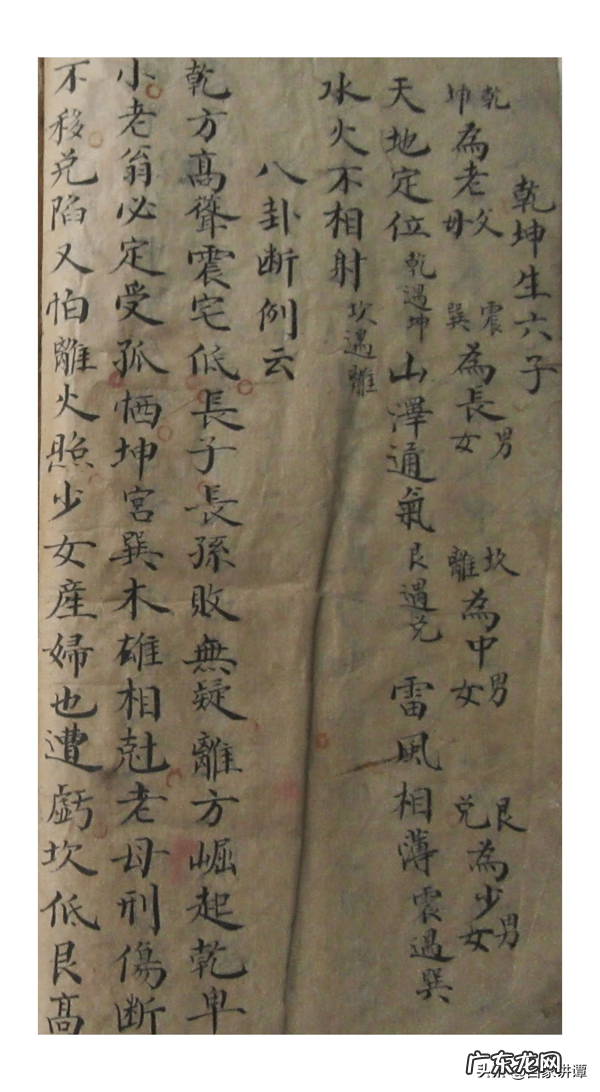 乾坤生六子
乾坤為老父母 震巽為長男女 坎離為中男女 艮兑為少男女
天地定位乾遇坤 山澤通氣艮遇兑 雷風相薄震遇巽
水火不相射坎遇離
八卦断例云
乾方高聳震宅低長子長孫敗無疑離方崛起乾卑
小老翁必定受孤栖坤宮巽木雄相尅老母刑傷断
不移兑陷又怕離火照少女産婦也遭虧坎低艮高
头条@百家讲谭
广东龙网